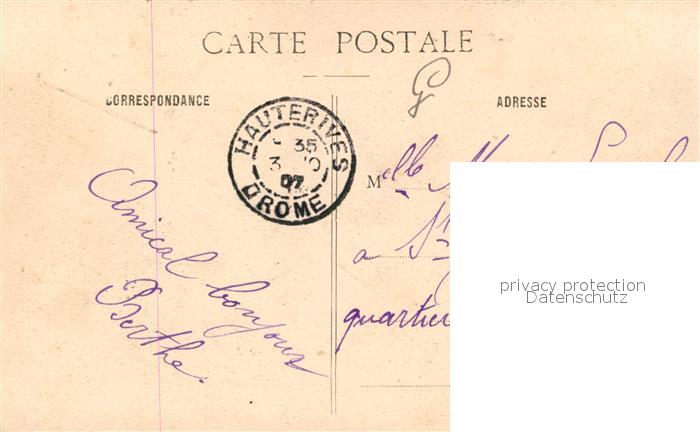 CARTE POSTALE
CORRESPONDANCE
ADRESSE
HAUTERIVES
35
3 10
07
DROME
Amical bonjour
Berthe.
Melle
a St
quartier
privacy protection
Datenschutz